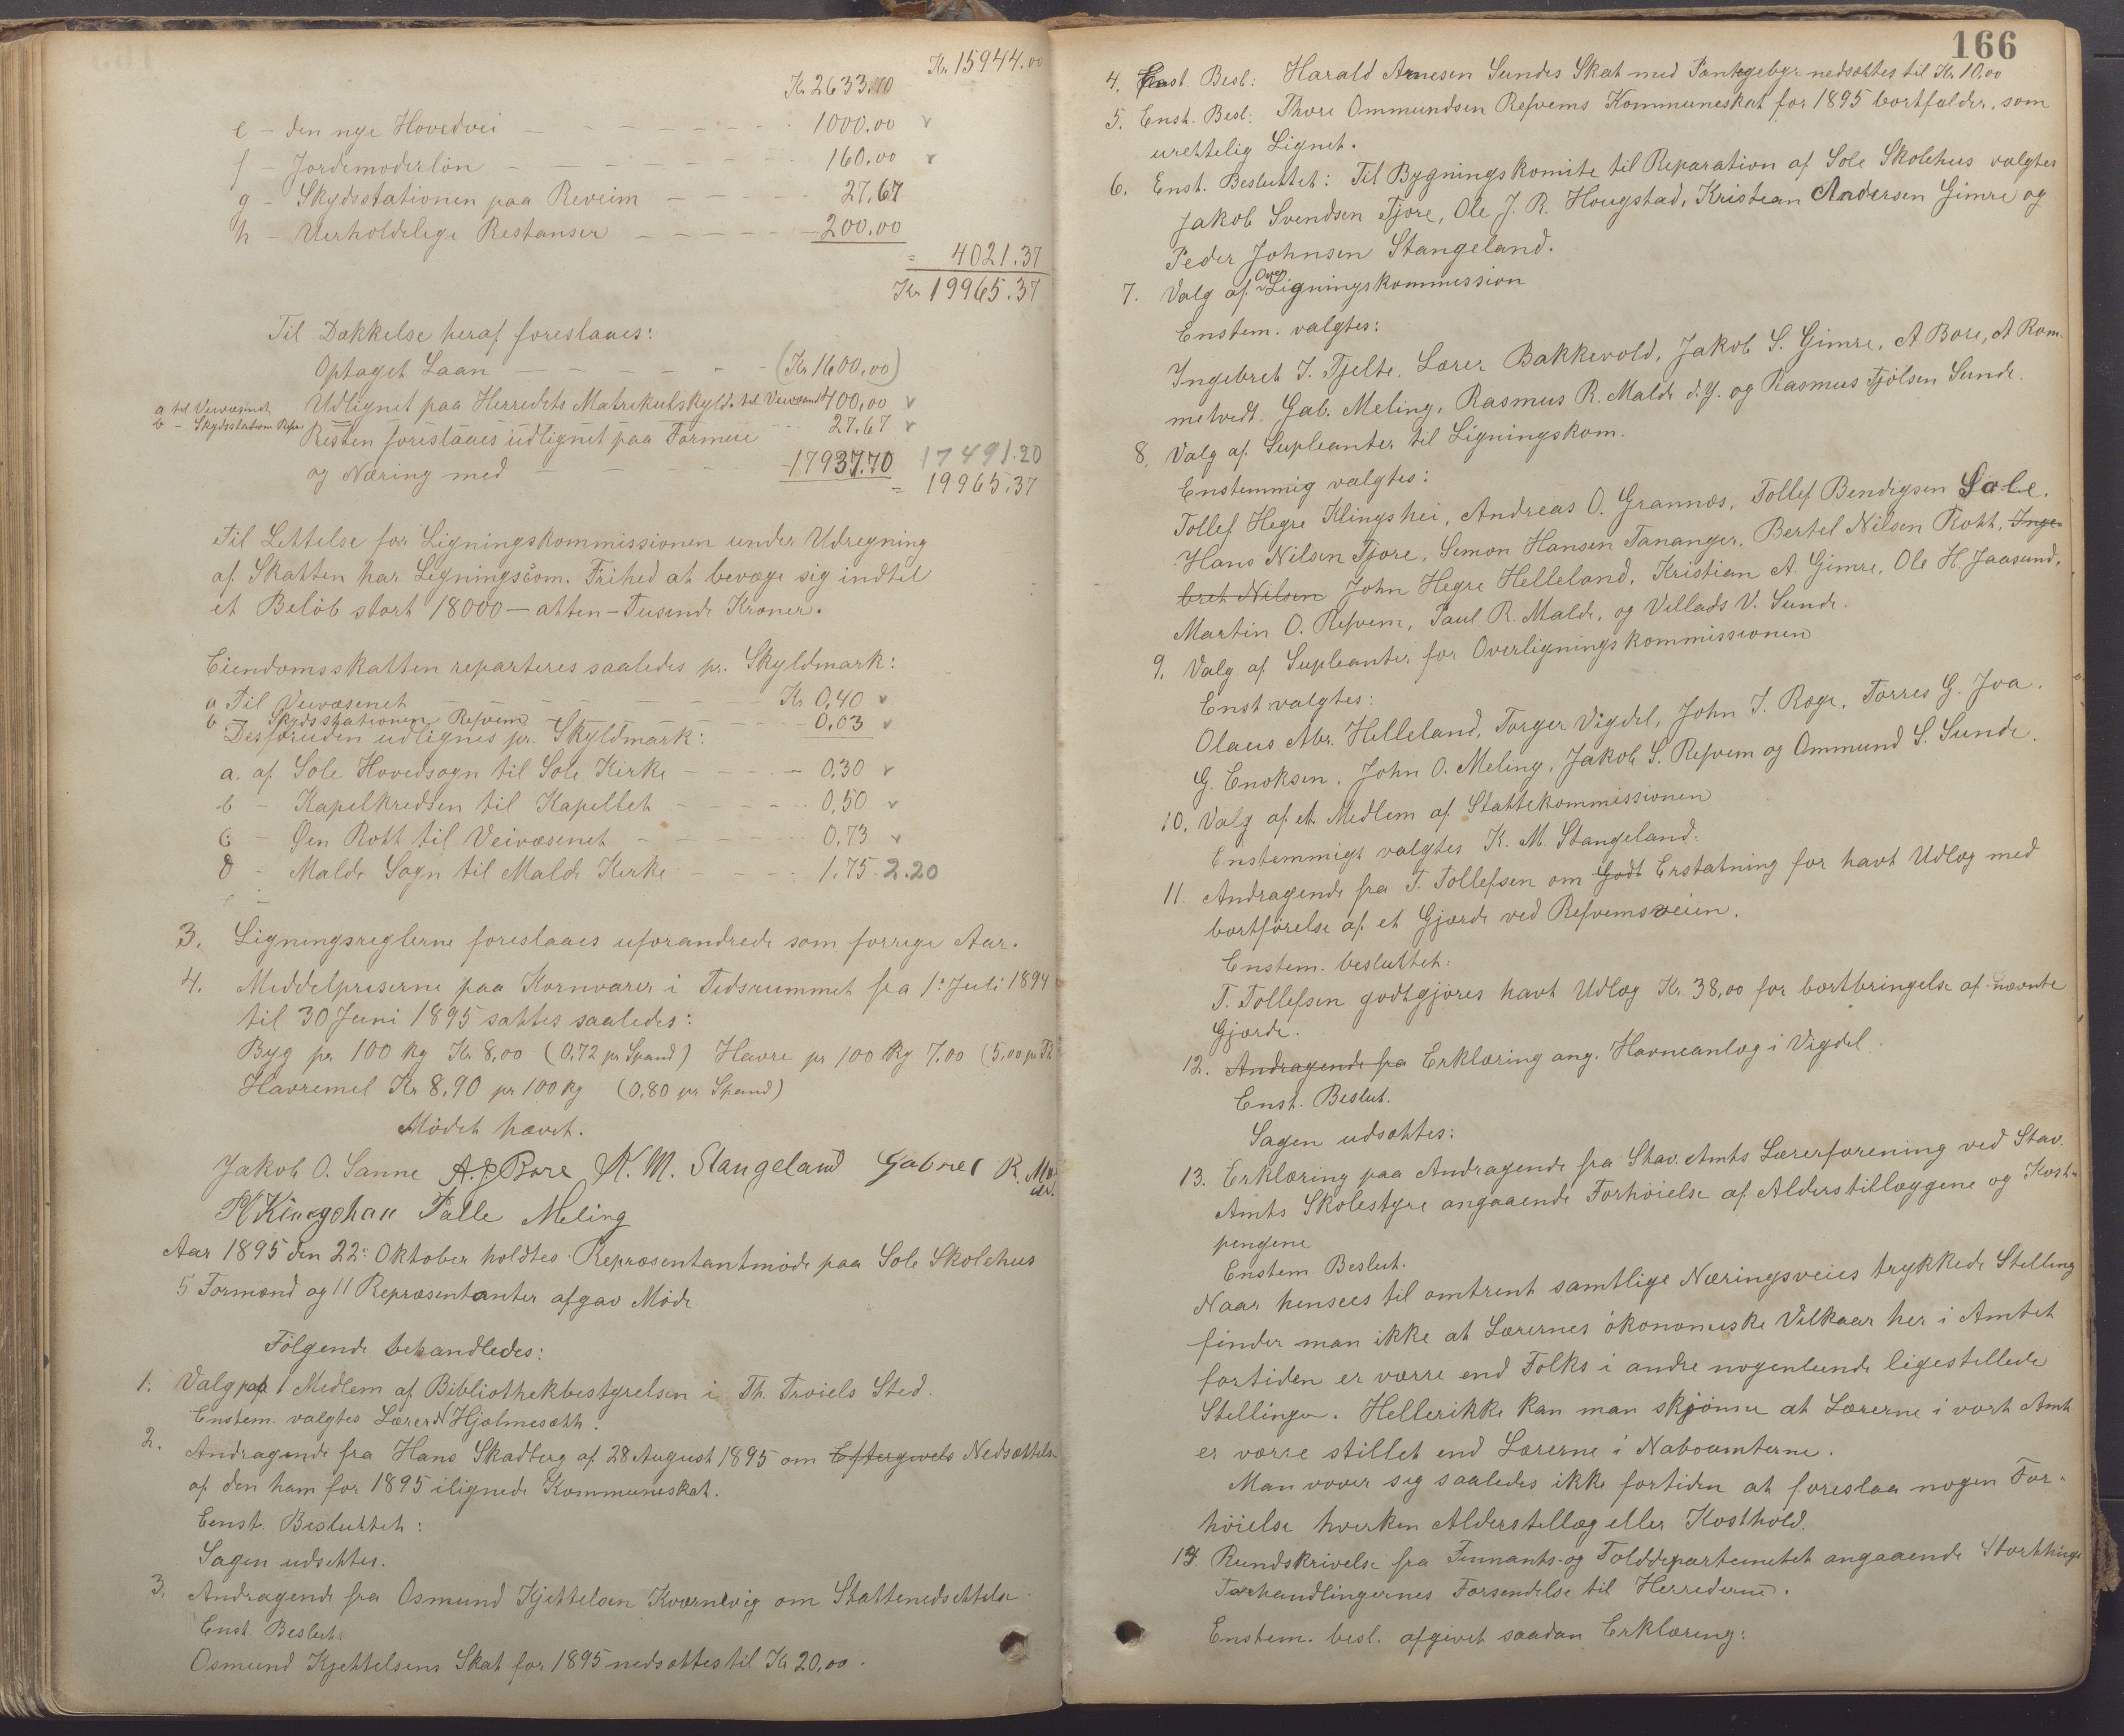 Kr. 15944.00
Kr. 2633.70
e - den nye Hovedvei - 1000.00
f - Jordemoderlön - 160.00
g - Skydsstationen paa Reveim - 27,67
h - Uerholdelige Restanser - 200.00
= 4021.37
Kr 19965.37
Til Dækkelse heraf foreslaaes:
Optaget Laan - (Kr 1600,00)
a til Veivæsenet Udlignet paa Herredets Matrikulskyld. til Veivæsenet 400,00
b - Skydsstation Refve 27.67
Resten foreslaaes udlignet paa Formue
og Næring med - 17937.70 17491.20
= 19965.37
Til Lettelse for Ligningskommissionen under Udregning
af Skatten har Ligningscom. Frihed at bevæge sig indtil
et Beløb stort 18000 - atten - Tusinde Kroner.
Eiendomsskatten reparteres saaledes pr. Skyldmark:
a Til Veivæsenet - Kr 0,40
b Skydsstationen Refvem - 0.03
Desforuden udlignes pr. Skyldmark:
a. af Sole Hovedsogn til Sole Kirke - 0.30
b - Kapelkredsen til Kapellet - 0,50
c - Øen Rott til Veivæsenet - 0.73
d - Malde Sogn til Malde Kirke - 1.75 2.20
3. Ligningsreglerne foreslaaes uforandrede som forrige Aar.
4. Middelpriserne paa Kornvarer i Tidsrummet fra 1ste Juli 1894
til 30 Juni 1895 sættes saaledes:
Byg pr 100 kg Kr 8,00 (0,72 pr Spand) Havre pr 100 kg 7,00 (5,00 pr T
Havremel Kr 8,90 pr 100 kg (0,80 pr Spand)
Mödet hævet.
Jakob O. Sanne A. J. Bore K. M. Stangeland Gabriel R.
Palle Meling
Aar 1895 den 22de Oktober holdtes Repræsentantmöde paa Sole Skolehus
5 Formænd og 11 Repræsentanter afgav Möde
Fölgende behandledes:
1. Valg paa 1 Medlem af Bibliothekbestyrelsen i Th. Troiels Sted.
Enstem. valgtes Lærer N Hjelmesæth.
2. Andragende fra Hans Skadberg af 28 August 1895 om Eftergivels Nedsættelse
af den ham for 1895 ilignede Kommuneskat.
Eenst. Besluttet:
Sagen udsettes.
3. Andragende fra Osmund Kjettelsen Kværnevig om Skattenedsettelse
Enst. Beslut.
Osmund Kjettelsens Skat for 1895 nedsættes til Kr 20,00.
166
4. Enst. Besl: Harald Arnesen Sundes Skat med Pantegebyr nedsættes til Kr. 10,00
5. Enst. Besl: Thore Ommundsen Refvems Kommuneskat for 1895 bortfalder, som
urettelig Lignet.
6. Enst. Besluttet: Til Bygningskomite til Reparation af Sole Skolehus valgtes
Jakob Svendsen Tjore, Ole J. R. Hougstad, Kristian Andersen Gimre og
Peder Johnsen Stangeland.
7. Valg af Over Ligningskommission
Enstem. valgtes:
Ingebret I. Tjelte, Lærer Bakkevold, Jakob S. Gimre, A Bore, A Rom-
metvedt. Gab. Meling, Rasmus R. Malde d. y. og Rasmus Tjölsen Sunde.
8. Valg af Supleanter til Ligningskom.
Enstemmig valgtes:
Tollef Hegre Klingshei, Andreas O. Grannæs, Tollef Bendigsen Sole.
Hans Nilsen Tjore, Simon Hansen Tananger, Bertel Nilsen Rott, Inge-
bret Nilsen John Hegre Helleland, Kristian A. Gimre, Ole H. Jaasund,
Martin O. Refvem, Paul R. Malde, og Villads V. Sunde.
9. Valg af Supleanter for Overligningskommissionen
Enst valgtes:
Olaus Abr. Helleland, Torger Vigdel, John I. Ræge, Torres G. Joa.
G. Enoksen. John O. Meling, Jakob S. Refvem og Ommund S. Sunde.
10. Valg af et Medlem af Skattekommissionen
Enstemmigt valgtes K. M. Stangeland.
11. Andragende fra T. Tollefsen om Godt Erstatning for havt Udlæg med
bortförelse af et Gjærde ved Refvemsveien.
Enstem. besluttet:
T. Tollefsen godtgjöres havt Udlæg Kr. 38,00 for bortbringelse af nævnte
Gjærde.
12. Andragende fra Erklæring ang. Havneanlæg i Vigdel.
Enst. Beslut.
Sagen udsættes:
13. Erklæring paa Andragende fra Stav. Amts Lærerforening ved Stav.
Amts Skolestyre angaaende Forhöielse af Alderstillæggene og Kost-
pengene
Enstem Beslut.
Naar hensees til omtrent samtlige Næringsveies trykkede Stilling
finder man ikke at Lærernes ökonomiske Vilkaar her i Amtet
fortiden er værre end Folks i andre nogenlunde ligestillede
Stillinger. Hellerikke kan man skjönne at Lærerne i vort Amt
er værre stillet end Lærerne i Naboamterne.
Man vover sig saaledes ikke fortiden at foreslaa nogen For-
höielse hverken Alderstillæg eller Kosthold.
14. Rundskrivelse fra Finnants- og Tolddepartemetet angaaende Storthings
Forhandlingernes Forsendelse til Herrederne.
Enstem. besl. afgivet saadan Erklæring: